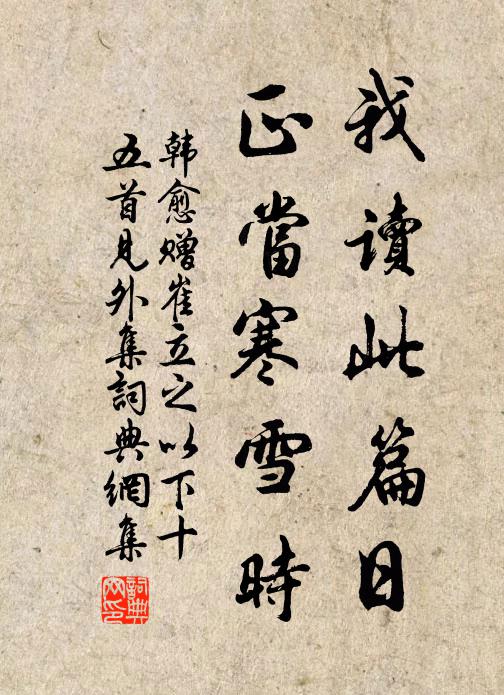 我讀此篇日
正當寒雪時
韩愈赠崔立之以下十
五首見外集詞典網集
詞典
网印